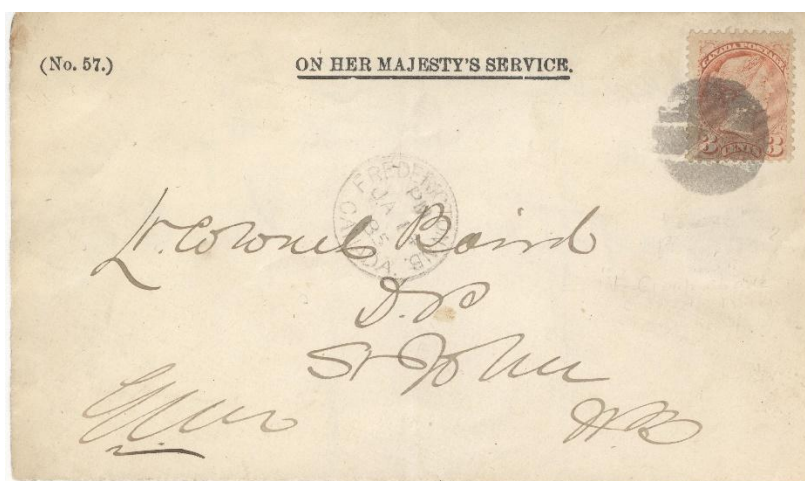 (No. 57.)
ON HER MAJESTY'S SERVICE.
CANADA POSTAGE
3 CENTS 3
FREDERICTON. N.B.
PM
JA 14
85
CANADA
Lt. Colonel Baird
D.P
St John
N.B